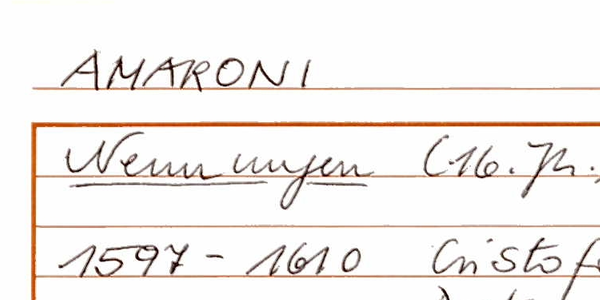 AMARONI
Nennungen (16. Jh.,
1597 - 1610 Cristof